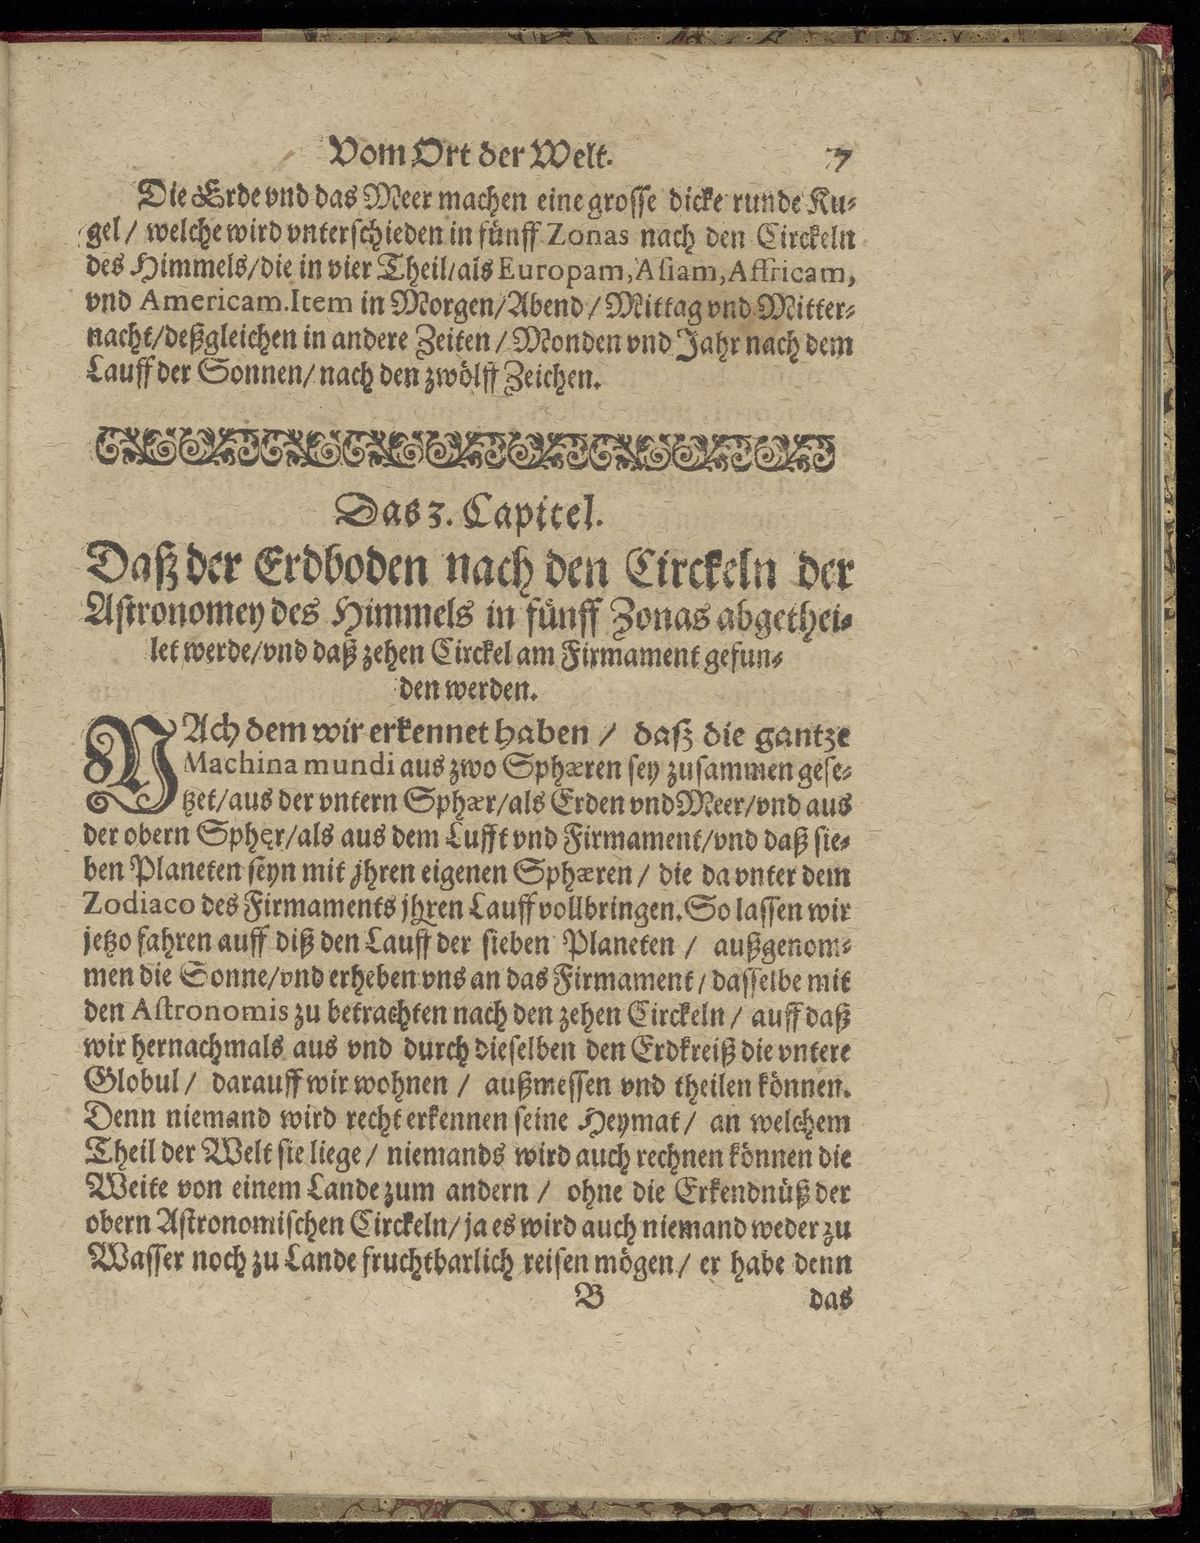 Vom Ort der Welt. 7
Die Erde vnd das Meer machen eine grosse dicke runde Ku-
gel / welche wird vnterschieden in fünff Zonas nach den Circkeln
des Himmels/die in vier Theil/als Europam, Asiam, Affricam,
vnd Americam. Item in Morgen/Abend / Mittag vnd Mitter-
nacht/deßgleichen in andere Zeiten / Monden vnd Jahr nach dem
Lauff der Sonnen/ nach den zwölff Zeichen.
Das 3. Capitel.
Daß der Erdboden nach den Circkeln der
Astronomey des Himmels in fünff Zonas abgethei-
let werde/vnd daß zehen Circkel am Firmament gefun-
den werden.
NAch dem wir erkennet haben / daß die gantze
Machina mundi aus zwo Sphæren sey zusammen gese-
tzet/aus der vntern Sphær/als Erden vnd Meer/vnd aus
der obern Sphęr/als aus dem Lufft vnd Firmament/vnd daß sie-
ben Planeten seyn mit jhren eigenen Sphæren / die da vnter dem
Zodiaco des Firmaments jhren Lauff vollbringen. So lassen wir
jetzo fahren auff diß den Lauff der sieben Planeten / außgenom-
men die Sonne/vnd erheben vns an das Firmament / dasselbe mit
den Astronomis zu betrachten nach den zehen Circkeln / auff daß
wir hernachmals aus vnd durch dieselben den Erdkreiß die vntere
Globul / darauff wir wohnen / außmessen vnd theilen können.
Denn niemand wird recht erkennen seine Heymat / an welchem
Theil der Welt sie liege / niemands wird auch rechnen können die
Weite von einem Lande zum andern / ohne die Erkendnüß der
obern Astronomischen Circkeln/ ja es wird auch niemand weder zu
Wasser noch zu Lande fruchtbarlich reisen mögen / er habe denn
B das